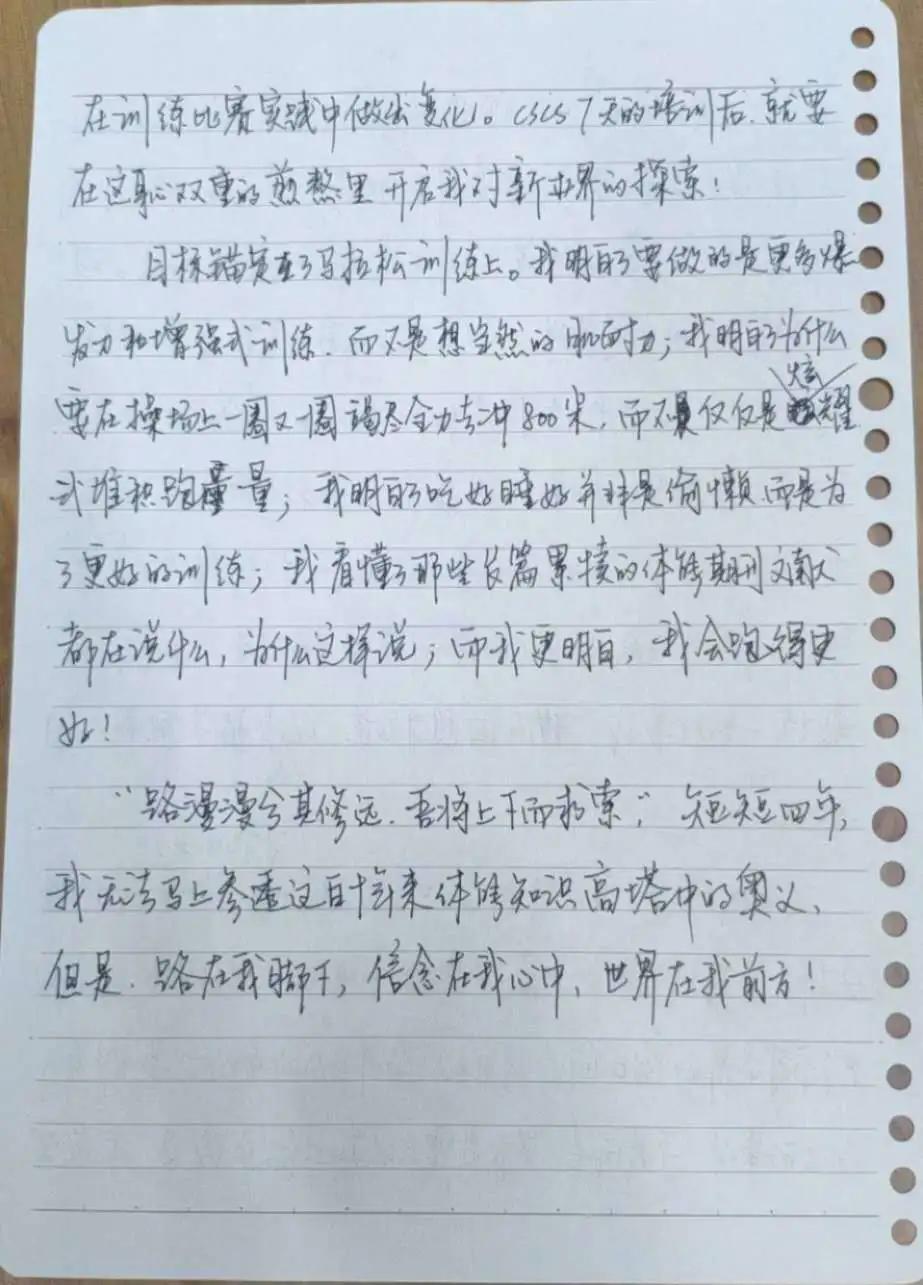 在训练比赛实践中做出变化。CSCS 7天的培训后,就要
在这身心双重的煎熬里开启我对新世界的探索!
目标锚定在了马拉松训练上。我明白了要做的是更多爆
发力和增强式训练,而不是想当然的肌耐力;我明白了为什么
要在操场上一圈又一圈竭尽全力去冲800米,而不是仅仅是炫耀
式堆积跑量;我明白了吃好睡好并非是偷懒而是为
了更好的训练;我看懂了那些长篇累牍的体能期刊文献
都在说什么,为什么这样说;而我更明白,我会跑得更
好!
“路漫漫兮其修远,吾将上下而求索,”短短四年,
我无法马上参透这百十年来体能知识高塔中的奥义,
但是,路在我脚下,信念在我心中,世界在我前方!